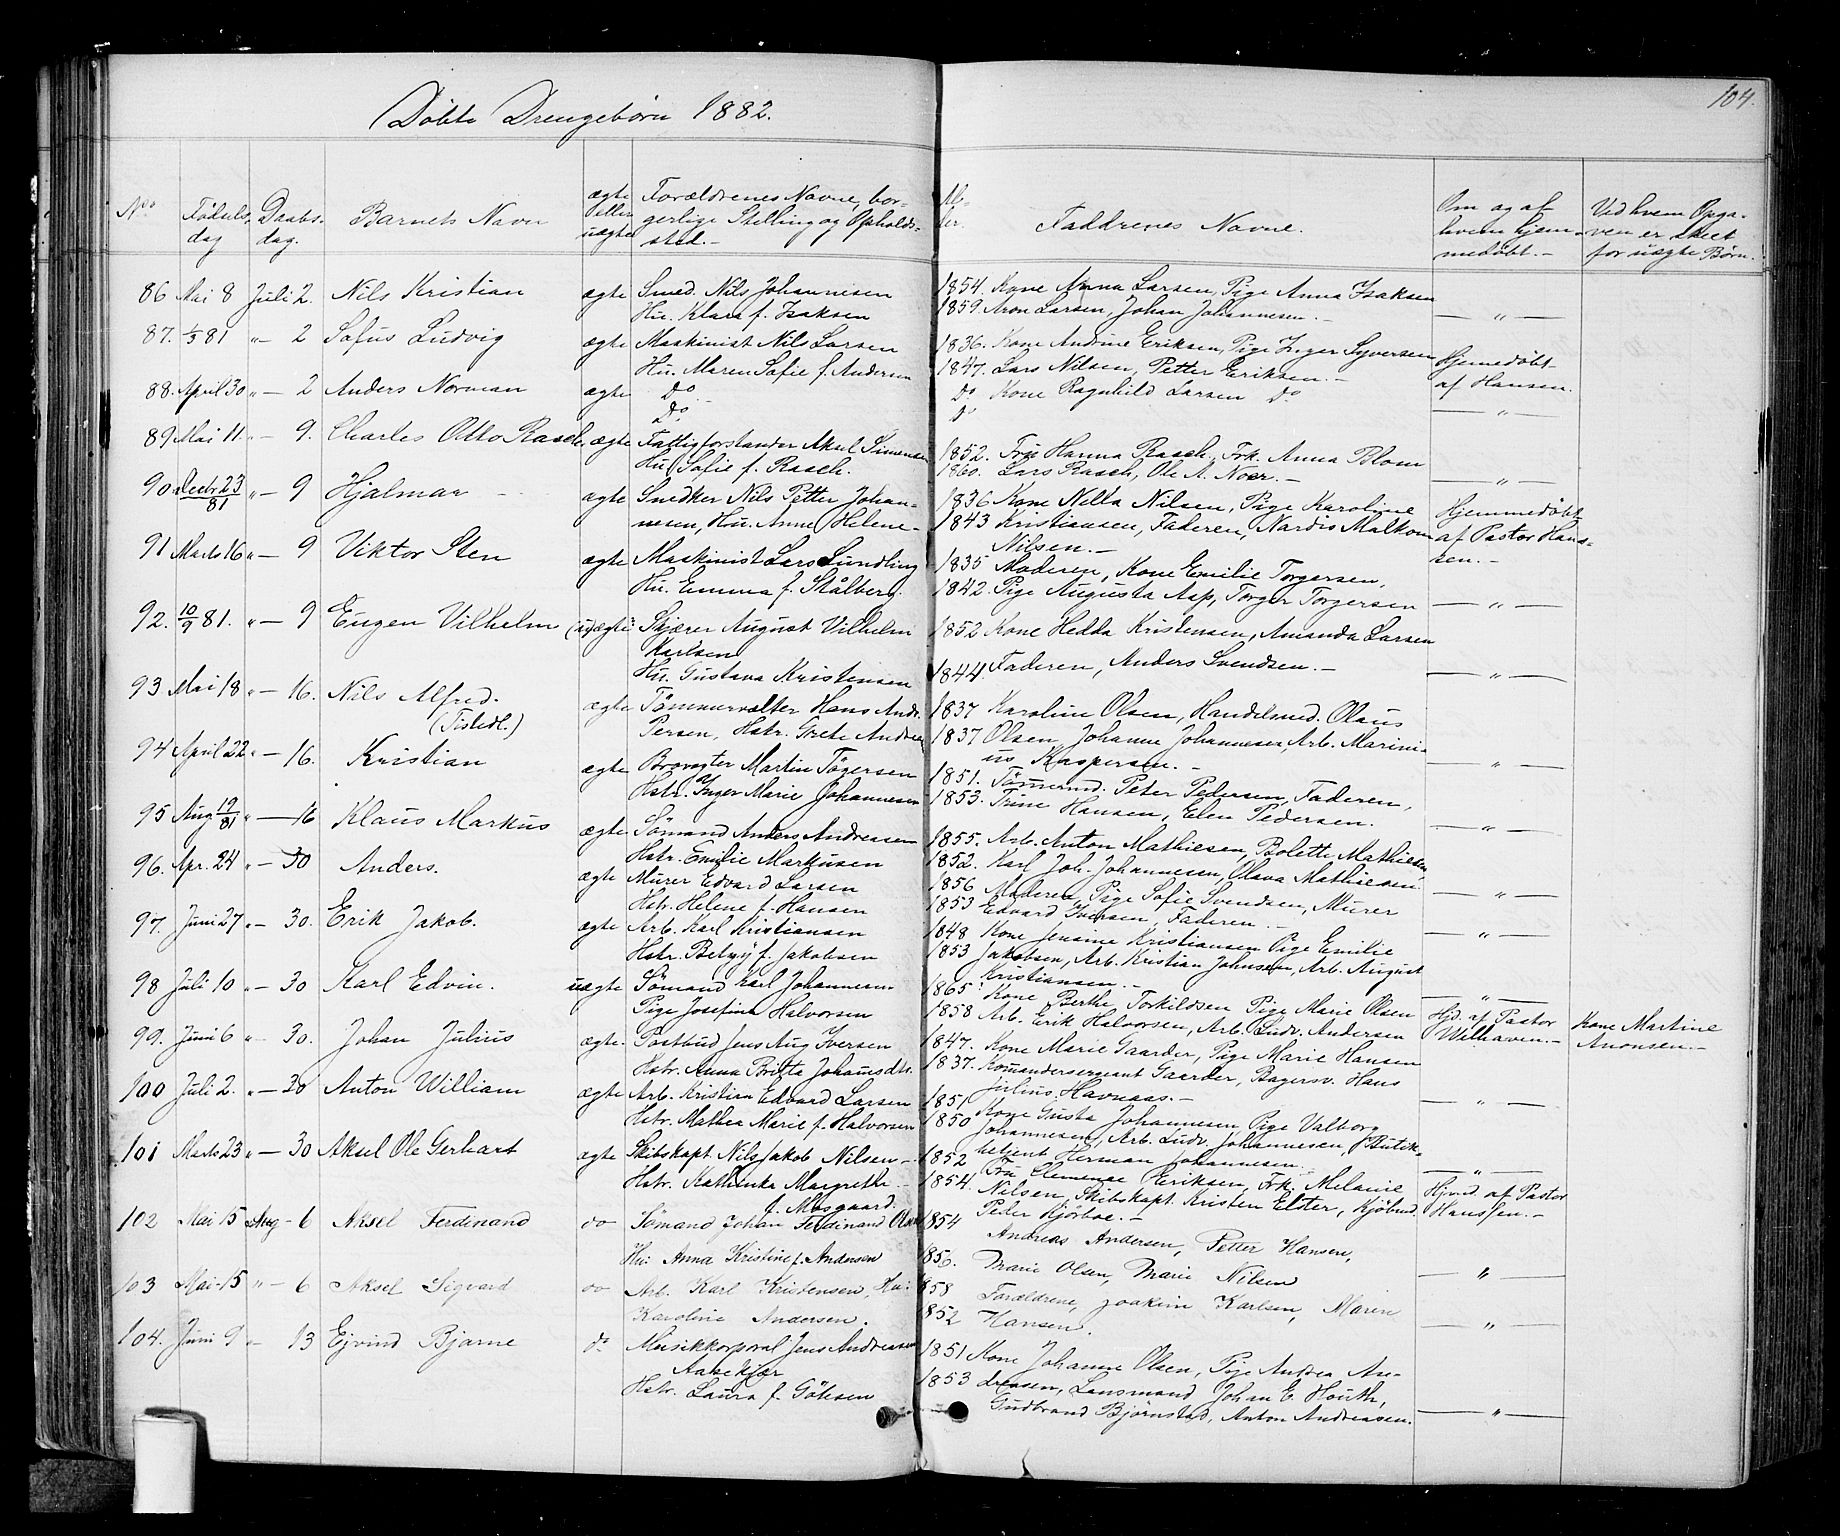 104.
Døbte Drengebørn 1882.
No. Fødsels dag Daabs dag. Barnets Navn ægte eller uægte Forældrenes Navne, borgerlige Stilling og Opholdssted.- Alder. Faddrenes Navne. Om og af hvem hjemmedøbt.- Ved hvem Opgaven er skeet for uægte Børn.
86 Mai 8 Juli 2. Nils Kristian ægte Smed. Nils Johannesen 1854. Kone Anna Larsen, Pige Anna Isaksen
Hu. Klara f. Isaksen 1859. Aron Larsen, Johan Johannesen.- — " —
87. 81 " - 2 Sofus Ludvig ægte Maskinist Nils Larsen 1836. Kone Andrine Eriksen, Pige Inger Syversen Hjemmedøbt
Hu. Maren Sofie f. Andersen 1847. Lars Nilsen, Petter Eriksen.- af Hansen.
88. April 30 " - 2 Anders Norman ægte Do Do Kone Ragnhild Larsen Do
Do Do — " —
89 Mai 11. " - 9. Charles Otto Rasch. ægte Fattigforstander Aksel Simensen 1852. Fru Hanna Rasch, Frk. Anna Blom
Hu. Sofie f. Rasch. 1860. Lars Rasch, Ole A. Noer.- — " —
90. Decbr 23/81 " - 9 Hjalmar - ægte Snedker Nils Petter Johan- 1836 Kone Nilla Nilsen, Pige Karoline Hjemmedøbt
nesen, Hu. Anne Helene- 1843 Kristiansen, Faderen, Nardis Malkom af Pastor Hans-
Nilsen.- sen.-
91 Marts 16 " - 9 Viktor Sten ægte Maskinist Lars Lundling 1835 Moderen, Kone Emilie Torgersen,
Hu. Emma f. Stålberg. 1842. Pige Augusta Aap, Torger Torgersen — " —
92. 10/9 81. " - 9 Eugen Vilhelm (u)ægte Skjærer August Vilhelm 1852 Kone Hedda Kristensen, Amanda Larsen
Karlsen
Hu. Gustava Kristensen 1844. Faderen, Anders Svendsen.- — " —
93 Mai 18 " - 16. Nils Alfred. (Tistedl.) ægte Tømmervælter Hans Andr. 1837 Karoline Olsen, Handelsmd. Olaus
Persen, Hstr. Grete Andrea 1837 Olsen, Johanne Johannesen, Arb. Marini-
us Kaspersen.- — " —
94 April 22 " - 16. Kristian ægte Brovagter Martin Tøgersen 1851. Tømmermd. Peter Pedersen, Faderen,
Hstr. Inger Marie Johannesen 1853. Trine Hansen, Elen Pedersen. — " —
95 Aug 19/81 " — 16 Klaus Markus ægte Sømand Anders Andreasen 1855. Arb. Anton Mathiesen, Bolette Mathiesen
Hstr. Emilie Markusen 1852. Karl Joh. Johannesen, Olava Mathiesen. — " —
96. Apr. 24 " - 30 Anders. ægte Murer Edvard Larsen 1856 Moderen, Pige Sofie Svendsen, Murer
Hstr. Helene f. Hansen 1853 Edvard Iversen, Faderen.- — " —
97. Juni 27 " - 30. Erik Jakob. ægte Arb. Karl Kristiansen 1848 Kone Jensine Kristiansen Pige Emilie
Hstr. Betsy f. Jakobsen 1853 Jakobsen, Arb. Kristian Johnsen, Arb. August
Kristiansen.- — " —
98 Juli 10 " - 30 Karl Edvin. uægte Sømand Karl Johannesen- 1865 Kone Berthe Torkildsen Pige Marie Olsen Hjd. af Pastor Kone Martine
Pige Josefine Halvorsen 1858 Arb. Erik Halvorsen, Arb. Ludv. Andersen Wilhaven.- Anonsen.-
99. Juni 6 " - 30. Johan Julius ægte. Postbud Jens Aug Iversen 1847. Kone Marie Gaarder, Pige Marie Hansen
Hstr. Anna Britta Johansdtr. 1837. Komandersergeant Gaarder, Bagersv. Hans
Julius Havnaas.- — " —
100 Juli 2. " - 30 Anton William ægte Arb. Kristian Edvard Larsen 1851 Kone Gusta Johannesen, Pige Valborg
Hstr. Mathea Marie f. Halvorsen 1850 Johannesen, Arb. Ludv. Johannesen, Butik-
betjent Herman Johannesen.- — " —
101 Marts 23 " - 30 Aksel Ole Gerhart ægte Skibskapt. Nils Jakob Nilsen- 1852 Fru Clemence Eriksen, Frk. Melanie Hjmd. af Pastor
Hstr. Kathinka Margrethe- 1854. Nilsen, Skibskapt. Kristen Elster, Kjøbmd. Hanssen.-
f. Mosgaard. Peter Kjørboe.-
102 Mai 15 Aug - 6 Aksel Ferdinand do Sømand Johan Ferdinand Olsen 1854 Andreas Andersen, Petter Hansen,
Hu: Anna Kristine f. Andersen 1856. Marie Olsen, Marie Nilsen — " —
103 Mai - 15 " - 6 Aksel Sigvard do Arb. Karl Kristensen, Hu: 1858 Forældrene, Joakim Karlsen, Maren
Karoline Andersen. 1852 Hansen. — " —
104. Juni 9 " - 13 Ejvind Bjarne do Musikkorporal Jens Andreasen 1851 Kone Johanne Olsen, Pige Andrea An-
Aabekjær 1853 dreasen, Lansmand Johan E. Houth,
Hstr. Laura f. Göksen Gudbrand Bjørnstad, Anton Andreasen. — " —